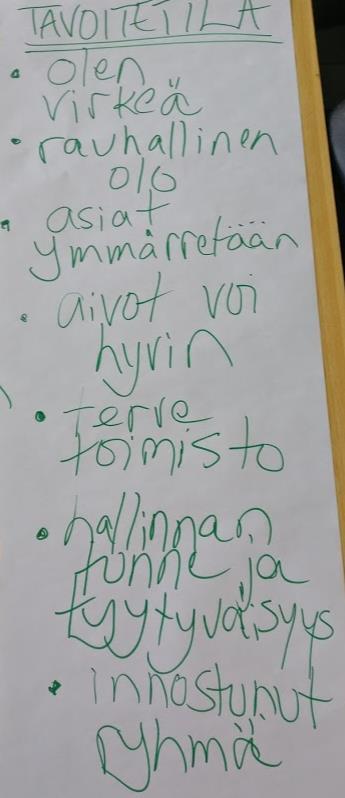 TAVOITETILA
• olen
virkeä
• rauhallinen
olo
• asiat
ymmärretään
• aivot voi
hyvin
• Terve
toimisto
• hallinnan
tunne ja
tyytyväisyys
• innostunut
ryhmä